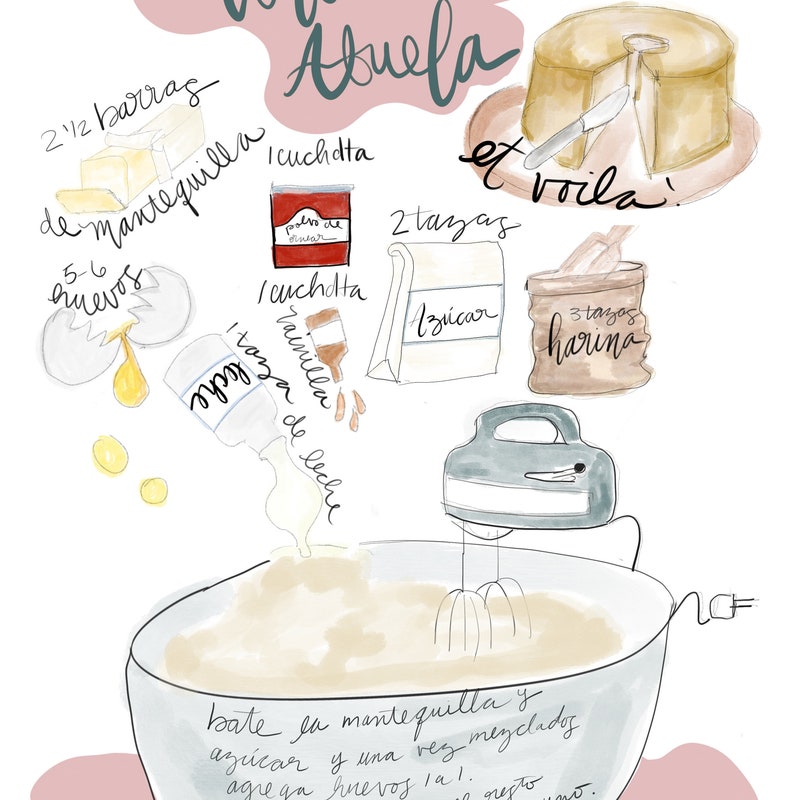 Abuela
2 1/2 barras
de mantequilla
1 cuchdta
polvo de
ornear
5-6
huevos
1 cuchdta
vainilla
2 tazas
Azúcar
3 tazas
harina
leche
1 taza de leche
et voila!
bate la mantequilla y
azúcar y una vez mezclados
agrega huevos 1 a 1.
el resto
uno.